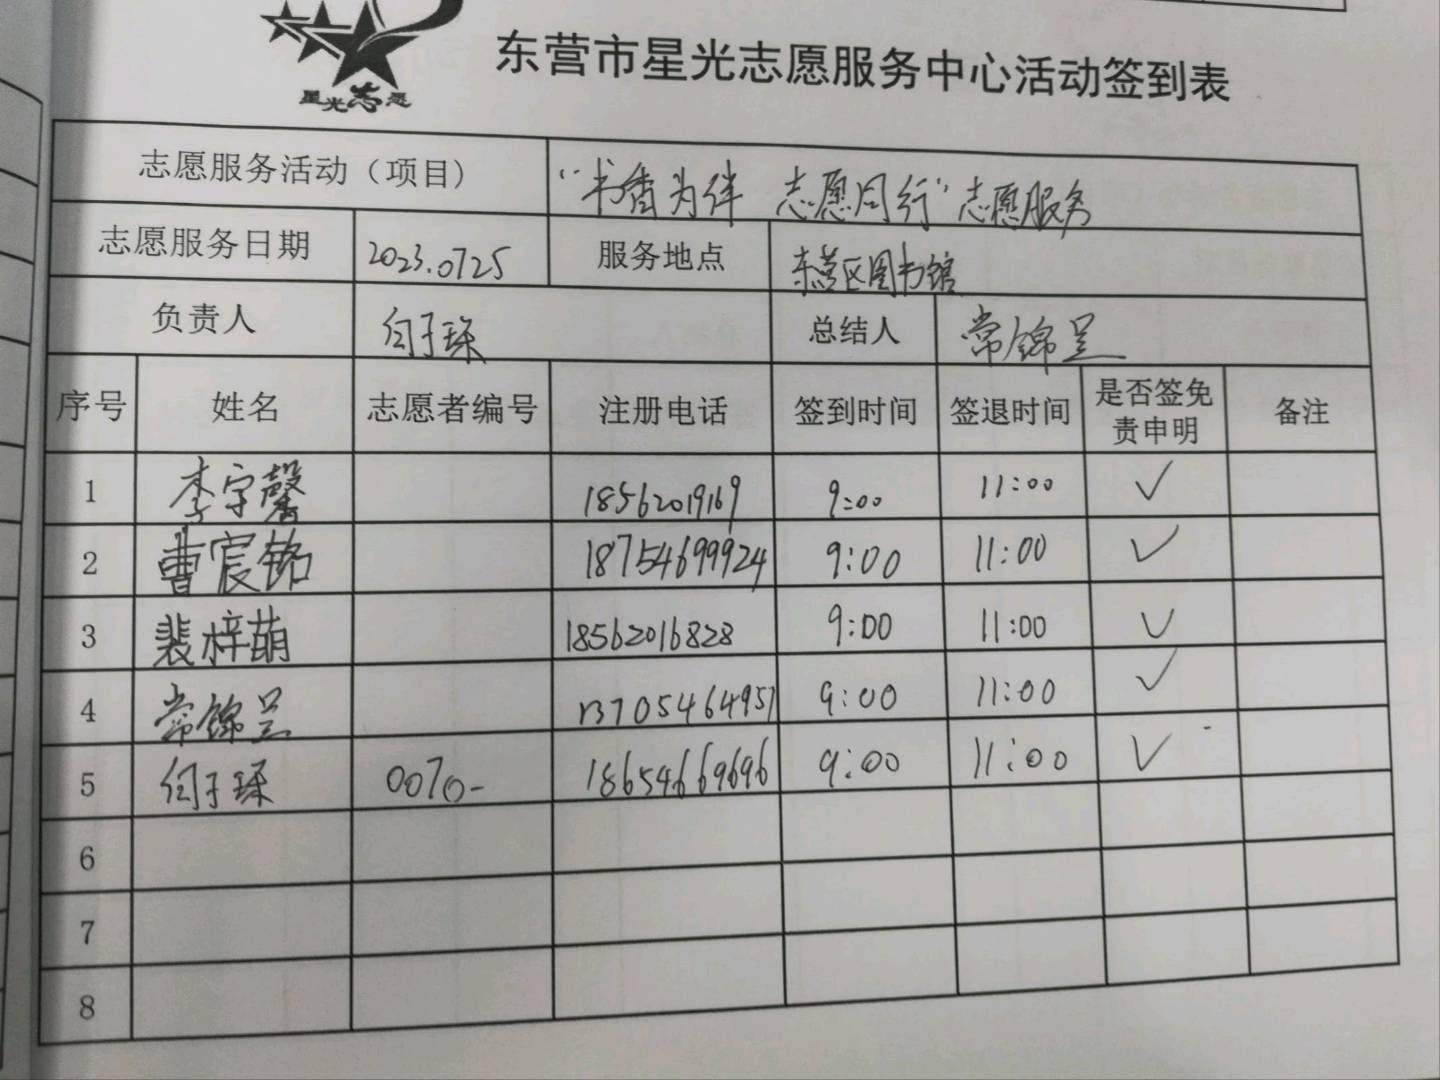 星光志愿
东营市星光志愿服务中心活动签到表
志愿服务活动（项目） “书香为伴 志愿同行”志愿服务
志愿服务日期 2023.0725 服务地点 东营区图书馆
负责人 总结人 常锦呈
序号 姓名 志愿者编号 注册电话 签到时间 签退时间 是否签免责申明 备注
1 李宇馨 18562019169 9:00 11:00 ✓
2 曹宸铭 18754699924 9:00 11:00 ✓
3 裴梓萌 18562016828 9:00 11:00 ✓
4 常锦呈 13705464957 9:00 11:00 ✓
5 0070- 18654669696 9:00 11:00 ✓
6
7
8